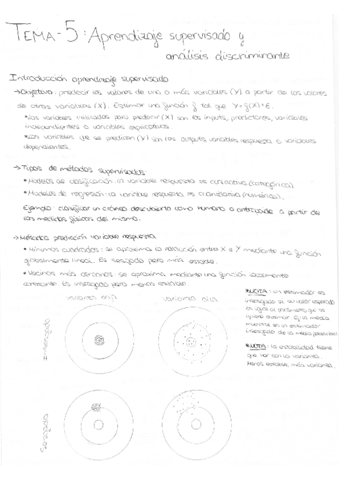 TEMA-5: Aprendizaje supervisado y
análisis discriminante
Introducción aprendizaje supervisado
→Objetivo: predecir los valores de una o más variables (Y) a partir de los valores
de otras variables (X). Estimar una función f tal que Y=f(X)+E.
•Las variables utilizadas para predecir (X) son los inputs, predictores, variables
independientes o variables explicativas.
•Las variables que se predicen (Y) son los outputs, variables respuesta o variables
dependientes.
→Tipos de métodos supervisados:
•Modelos de clasificación: la variable respuesta es cualitativa (categórica).
•Modelos de regresión: la variable respuesta es cuantitativa (numérica).
Ejemplo: clasificar un cráneo descubierto como humano o antropoide a partir de
las medidas físicas del mismo.
→Métodos predicción variable respuesta:
•Mínimos cuadrados: se aproxima la relación entre X e Y mediante una función
globalmente lineal. Es sesgada pero más estable.
•Vecinos más cercanos: se aproxima mediante una función localmente
constante. Es insesgada pero menos estable.
varianza baja varianza alta
Insesgado
Sesgado
NOTA: un estimador es
insesgado si su valor esperado
es igual al parámetro que se
quiere estimar. Ej: la media
muestral es un estimador
insesgado de la media
NOTA: la estabilidad tiene
que ver con la varianza.
menos estable, más varianza.